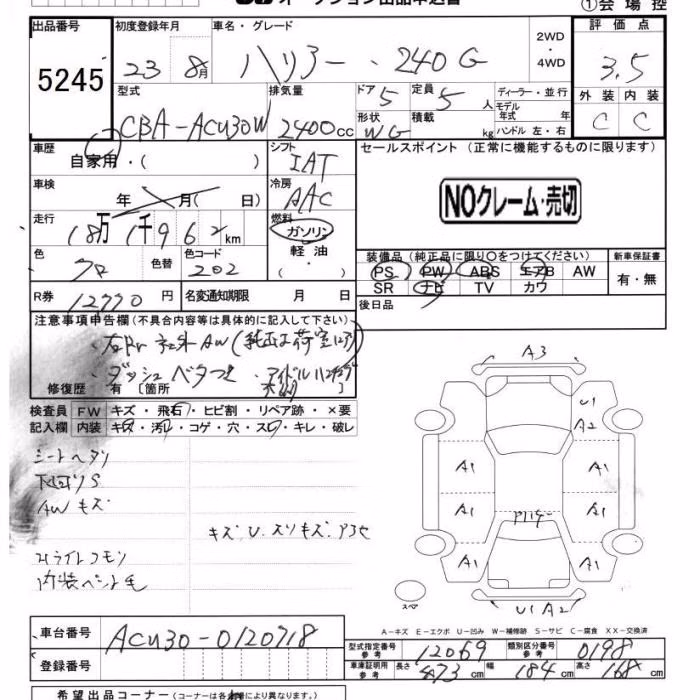 オークション出品申込書
①会場控
出品番号
5245
初度登録年月
23 8月
車名・グレード
ハリアー ・240G
2WD
・
4WD
評価点
3.5
外装 内装
C C
型式
CBA-ACU30W
排気量
2400cc
ドア
5
定員
5人
形状
WG
積載
kg
ディーラー・並行
モデル
年式 年
ハンドル 左・右
車歴
自家用・( )
シフト
IAT
セールスポイント (正常に機能するものに限ります)
NOクレーム・売切
車検
年 月( 日)
冷房
AAC
走行
18万1千962km
燃料
ガソリン
軽油
・( )
色
クロ
色替
色コード
202
装備品(純正品に限り○をつけてください)
PS PW ABS エアB AW
SR ナビ TV カワ
新車保証書
有・無
R券
12770円
名変通知期限 月 日
後日品
注意事項申告欄(不具合内容等は具体的に記入して下さい)
・右Fr 社外AW(純正は荷室に)
・ダッシュベタつき・アイドルハンチング
大
修復歴 有 [箇所
検査員 FW キズ・飛石・ヒビ割・リペア跡・×要
記入欄 内装 キズ・汚れ・コゲ・穴・スレ・キレ・破レ
シートヘタリ
下回りS
AWキズ
キズ、U、スリキズ、アタセ
ライトクモリ
内装ペット毛
A3
U1
A2
A1
A1
A1
A1
A1
A1
U1 A2
スペア
A-キズ E-エクボ U-凹み W-補修跡 S-サビ C-腐食 XX-交換済
車台番号
ACU30-0120718
登録番号
型式指定番号
参考
12069
類別区分番号
参考
0198
車庫証明用
参考
長さ 473cm 幅 184cm 高さ 168cm
希望出品コーナー(コーナーは各会場により異なります。)